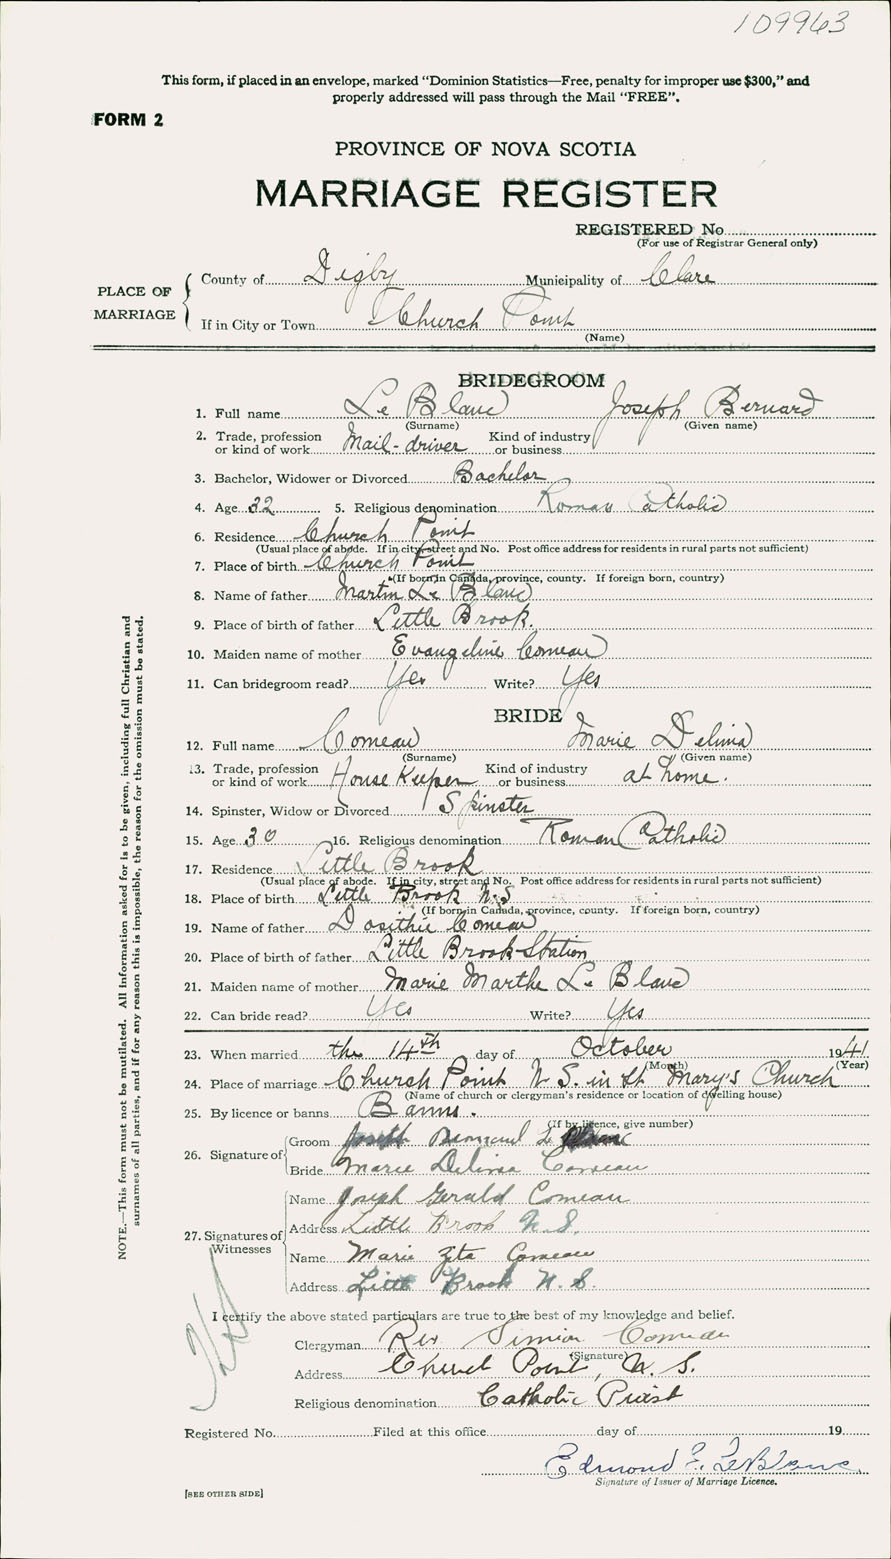 109963
This form, if placed in an envelope, marked “Dominion Statistics—Free, penalty for improper use $300,” and
properly addressed will pass through the Mail “FREE”.
FORM 2
PROVINCE OF NOVA SCOTIA
MARRIAGE REGISTER
REGISTERED No
(For use of Registrar General only)
PLACE OF MARRIAGE
County of Digby Municipality of Clare
If in City or Town Church Point
(Name)
BRIDEGROOM
1. Full name Le Blanc Joseph Bernard
(Surname) (Given name)
2. Trade, profession or kind of work Mail-driver Kind of industry or business
3. Bachelor, Widower or Divorced Bachelor
4. Age 32 5. Religious denomination Roman Catholic
6. Residence Church Point
(Usual place of abode. If in city, street and No. Post office address for residents in rural parts not sufficient)
7. Place of birth Church Point
(If born in Canada, province, county. If foreign born, country)
8. Name of father Martin Le Blanc
9. Place of birth of father Little Brook.
10. Maiden name of mother Evangeline Comeau
11. Can bridegroom read? Yes Write? Yes
BRIDE
12. Full name Comeau Marie Delina
(Surname) (Given name)
13. Trade, profession or kind of work House Keeper Kind of industry or business at home.
14. Spinster, Widow or Divorced Spinster
15. Age 30 16. Religious denomination Roman Catholic
17. Residence Little Brook
(Usual place of abode. If in city, street and No. Post office address for residents in rural parts not sufficient)
18. Place of birth Little Brook N.S
(If born in Canada, province, county. If foreign born, country)
19. Name of father Dosithie Comeau
20. Place of birth of father Little Brook Station
21. Maiden name of mother Marie Marthe Le Blanc
22. Can bride read? Yes Write? Yes
23. When married the 14th day of October 1941
(Month) (Year)
24. Place of marriage Church Point N.S. in St Mary's Church
(Name of church or clergyman's residence or location of dwelling house)
25. By licence or banns Banns.
(If by licence, give number)
26. Signature of
Groom Joseph Bernard Le Blanc
Bride Marie Delina Comeau
27. Signatures of Witnesses
Name Joseph Gerald Comeau
Address Little Brook N.S.
Name Marie Zita Comeau
Address Little Brook N.S.
I certify the above stated particulars are true to the best of my knowledge and belief.
Clergyman Rev Simeon Comeau
(Signature)
Address Church Point, N.S.
Religious denomination Catholic Priest
Registered No. Filed at this office day of 19
Edmond F. LeBlanc
Signature of Issuer of Marriage Licence.
[SEE OTHER SIDE]
NOTE.—This form must not be mutilated. All Information asked for is to be given, including full Christian and
surnames of all parties, and if for any reason this is impossible, the reason for the omission must be stated.